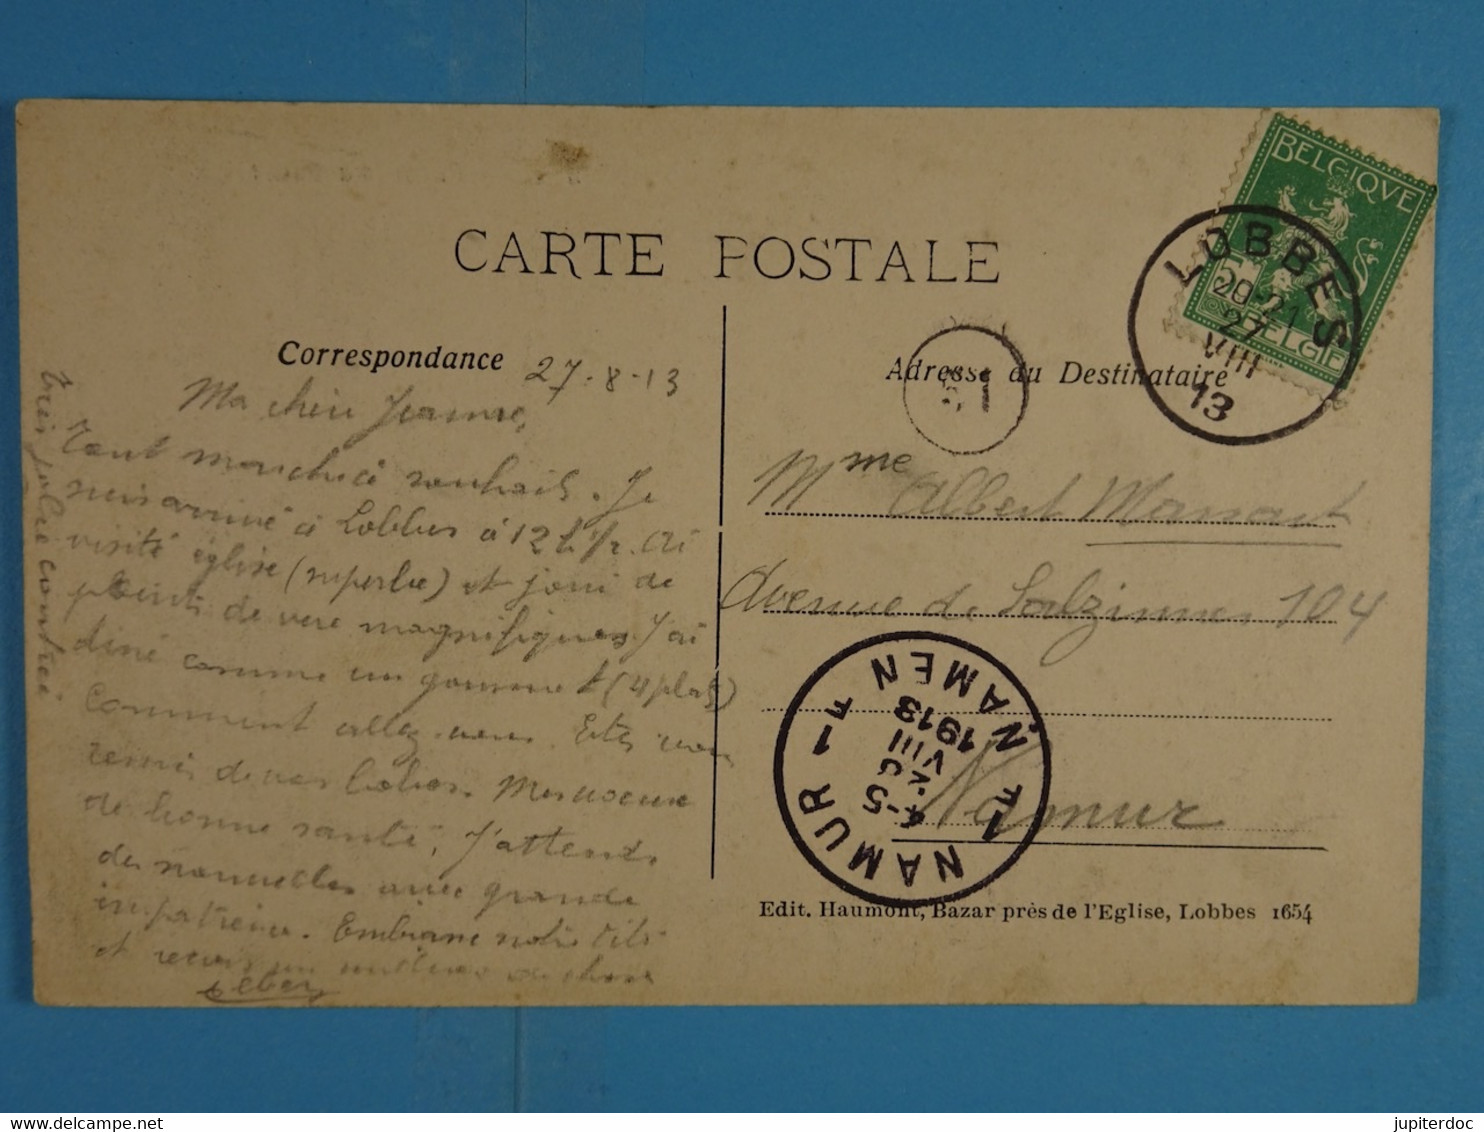 CARTE POSTALE
BELGIQUE
BELGIE
LOBBES
20-21
27
VIII
13
Correspondance
27-8-13
Ma chère Jeanne,
Tout marche à souhait. Je
suis arrivé à Lobbes à 12 h 1/2. Ai
visité église (superbe) et joui de
points de vue magnifiques. J'ai
diné comme un gourmet (4 plats)
Comment allez-vous. Etes vous
remis de vos
de bonne santé, J'attends
des nouvelles avec grande
impatience. Embrasse notre
et reçois
Très jolie contrée
Adresse du Destinataire
Mme Albert Massaut
Avenue de Salzinnes 104
Namur
NAMUR 1 F
1 F NAMEN
VIII
1913
Edit. Haumont, Bazar près de l'Eglise, Lobbes 1654
jupiterdoc